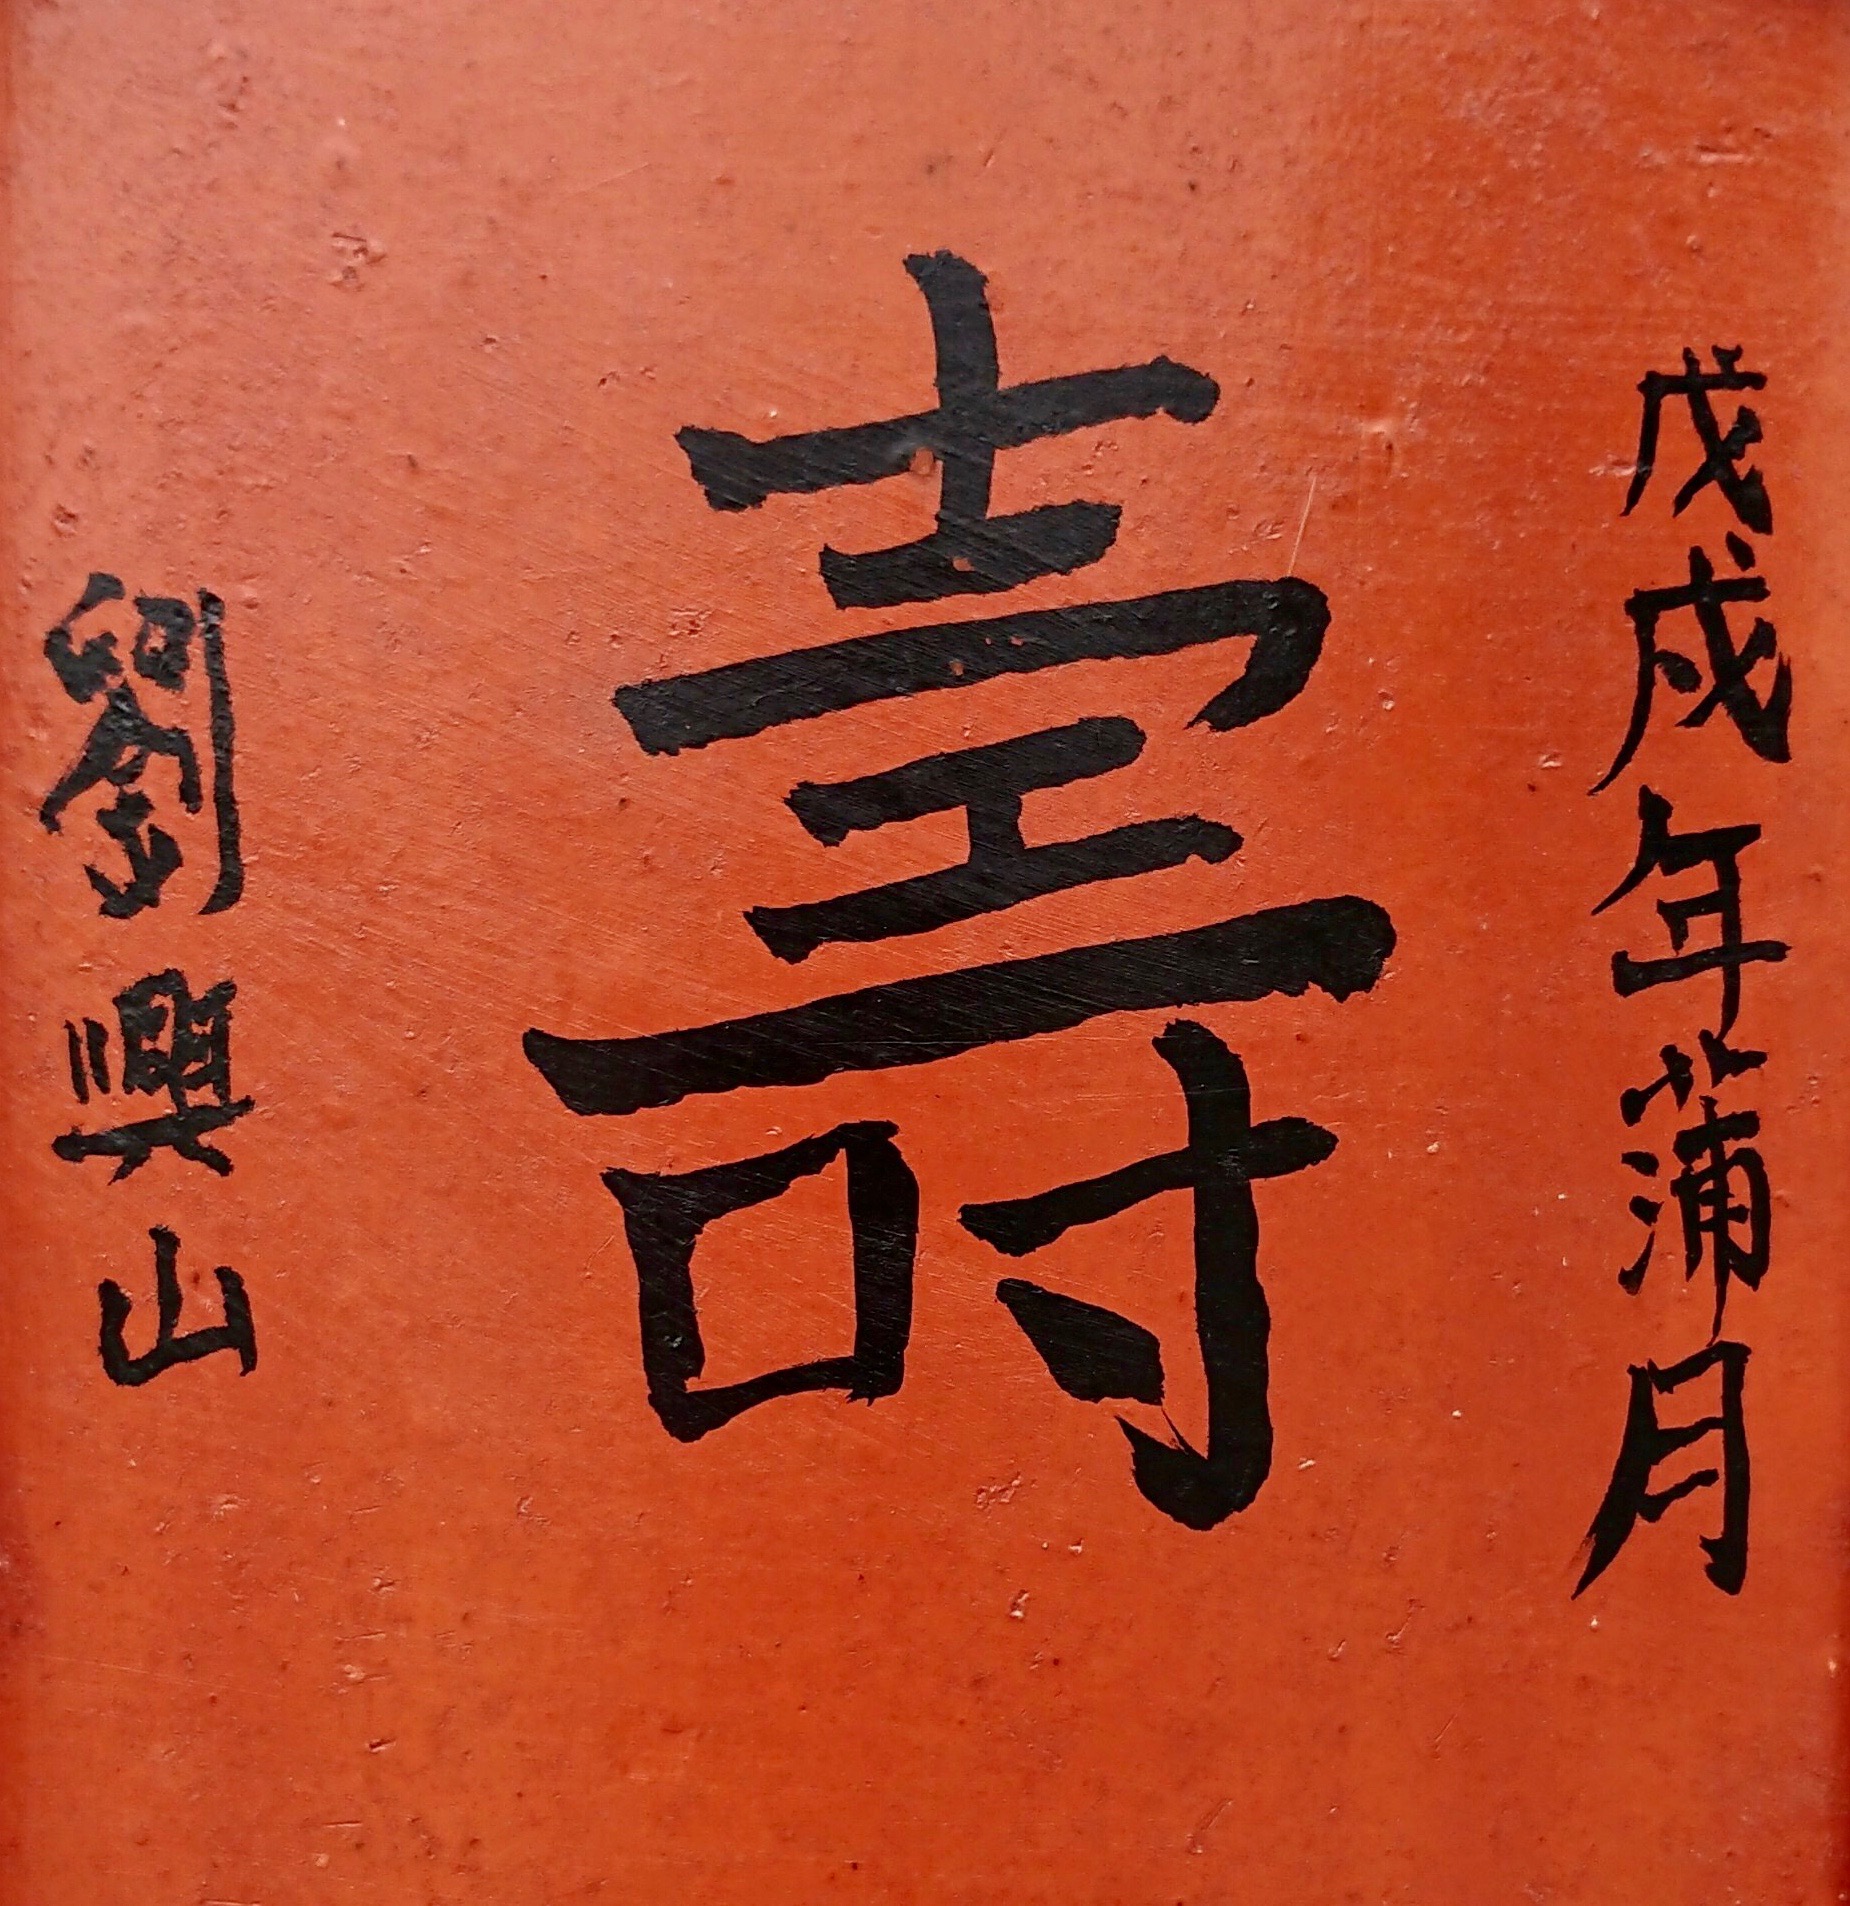 戊戌年蒲月
壽
劉興山